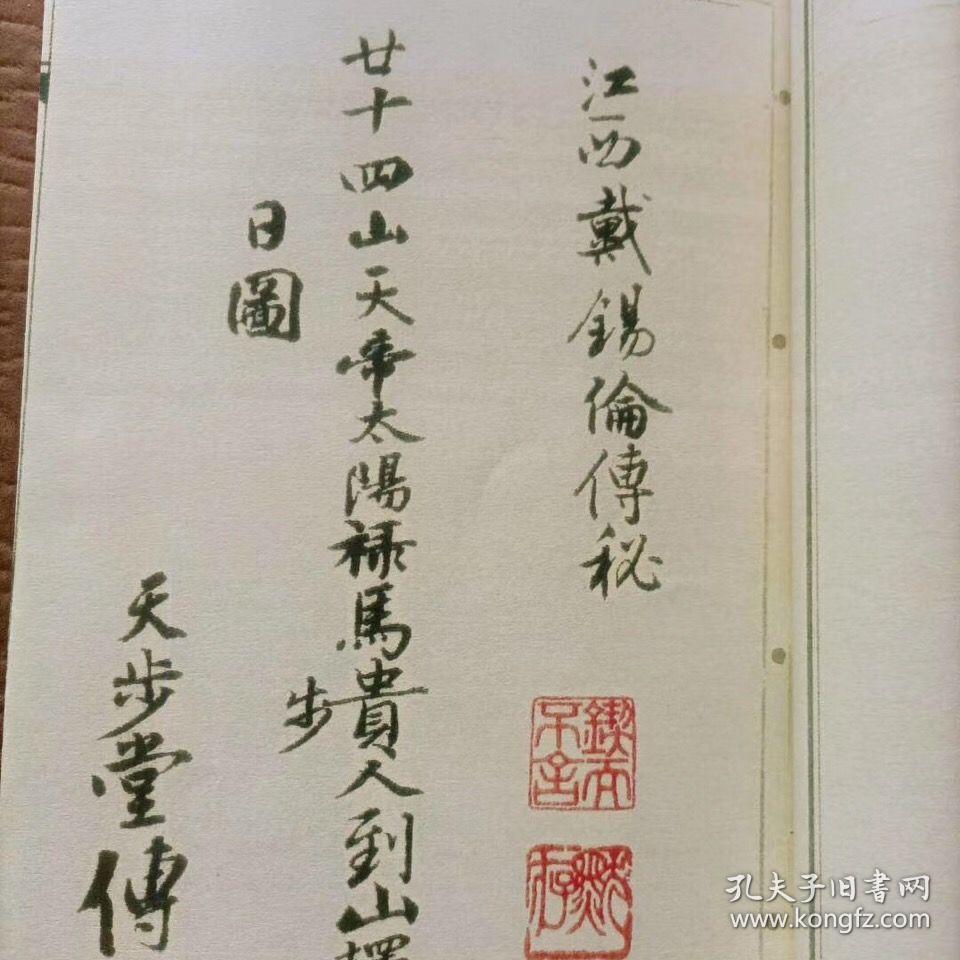 江西戴錫倫傳秘
鍥而不舍
廿十四山天帝太陽禄馬貴人到山擇
步
日圖
天步堂傳
孔夫子旧书网
www.kongfz.com